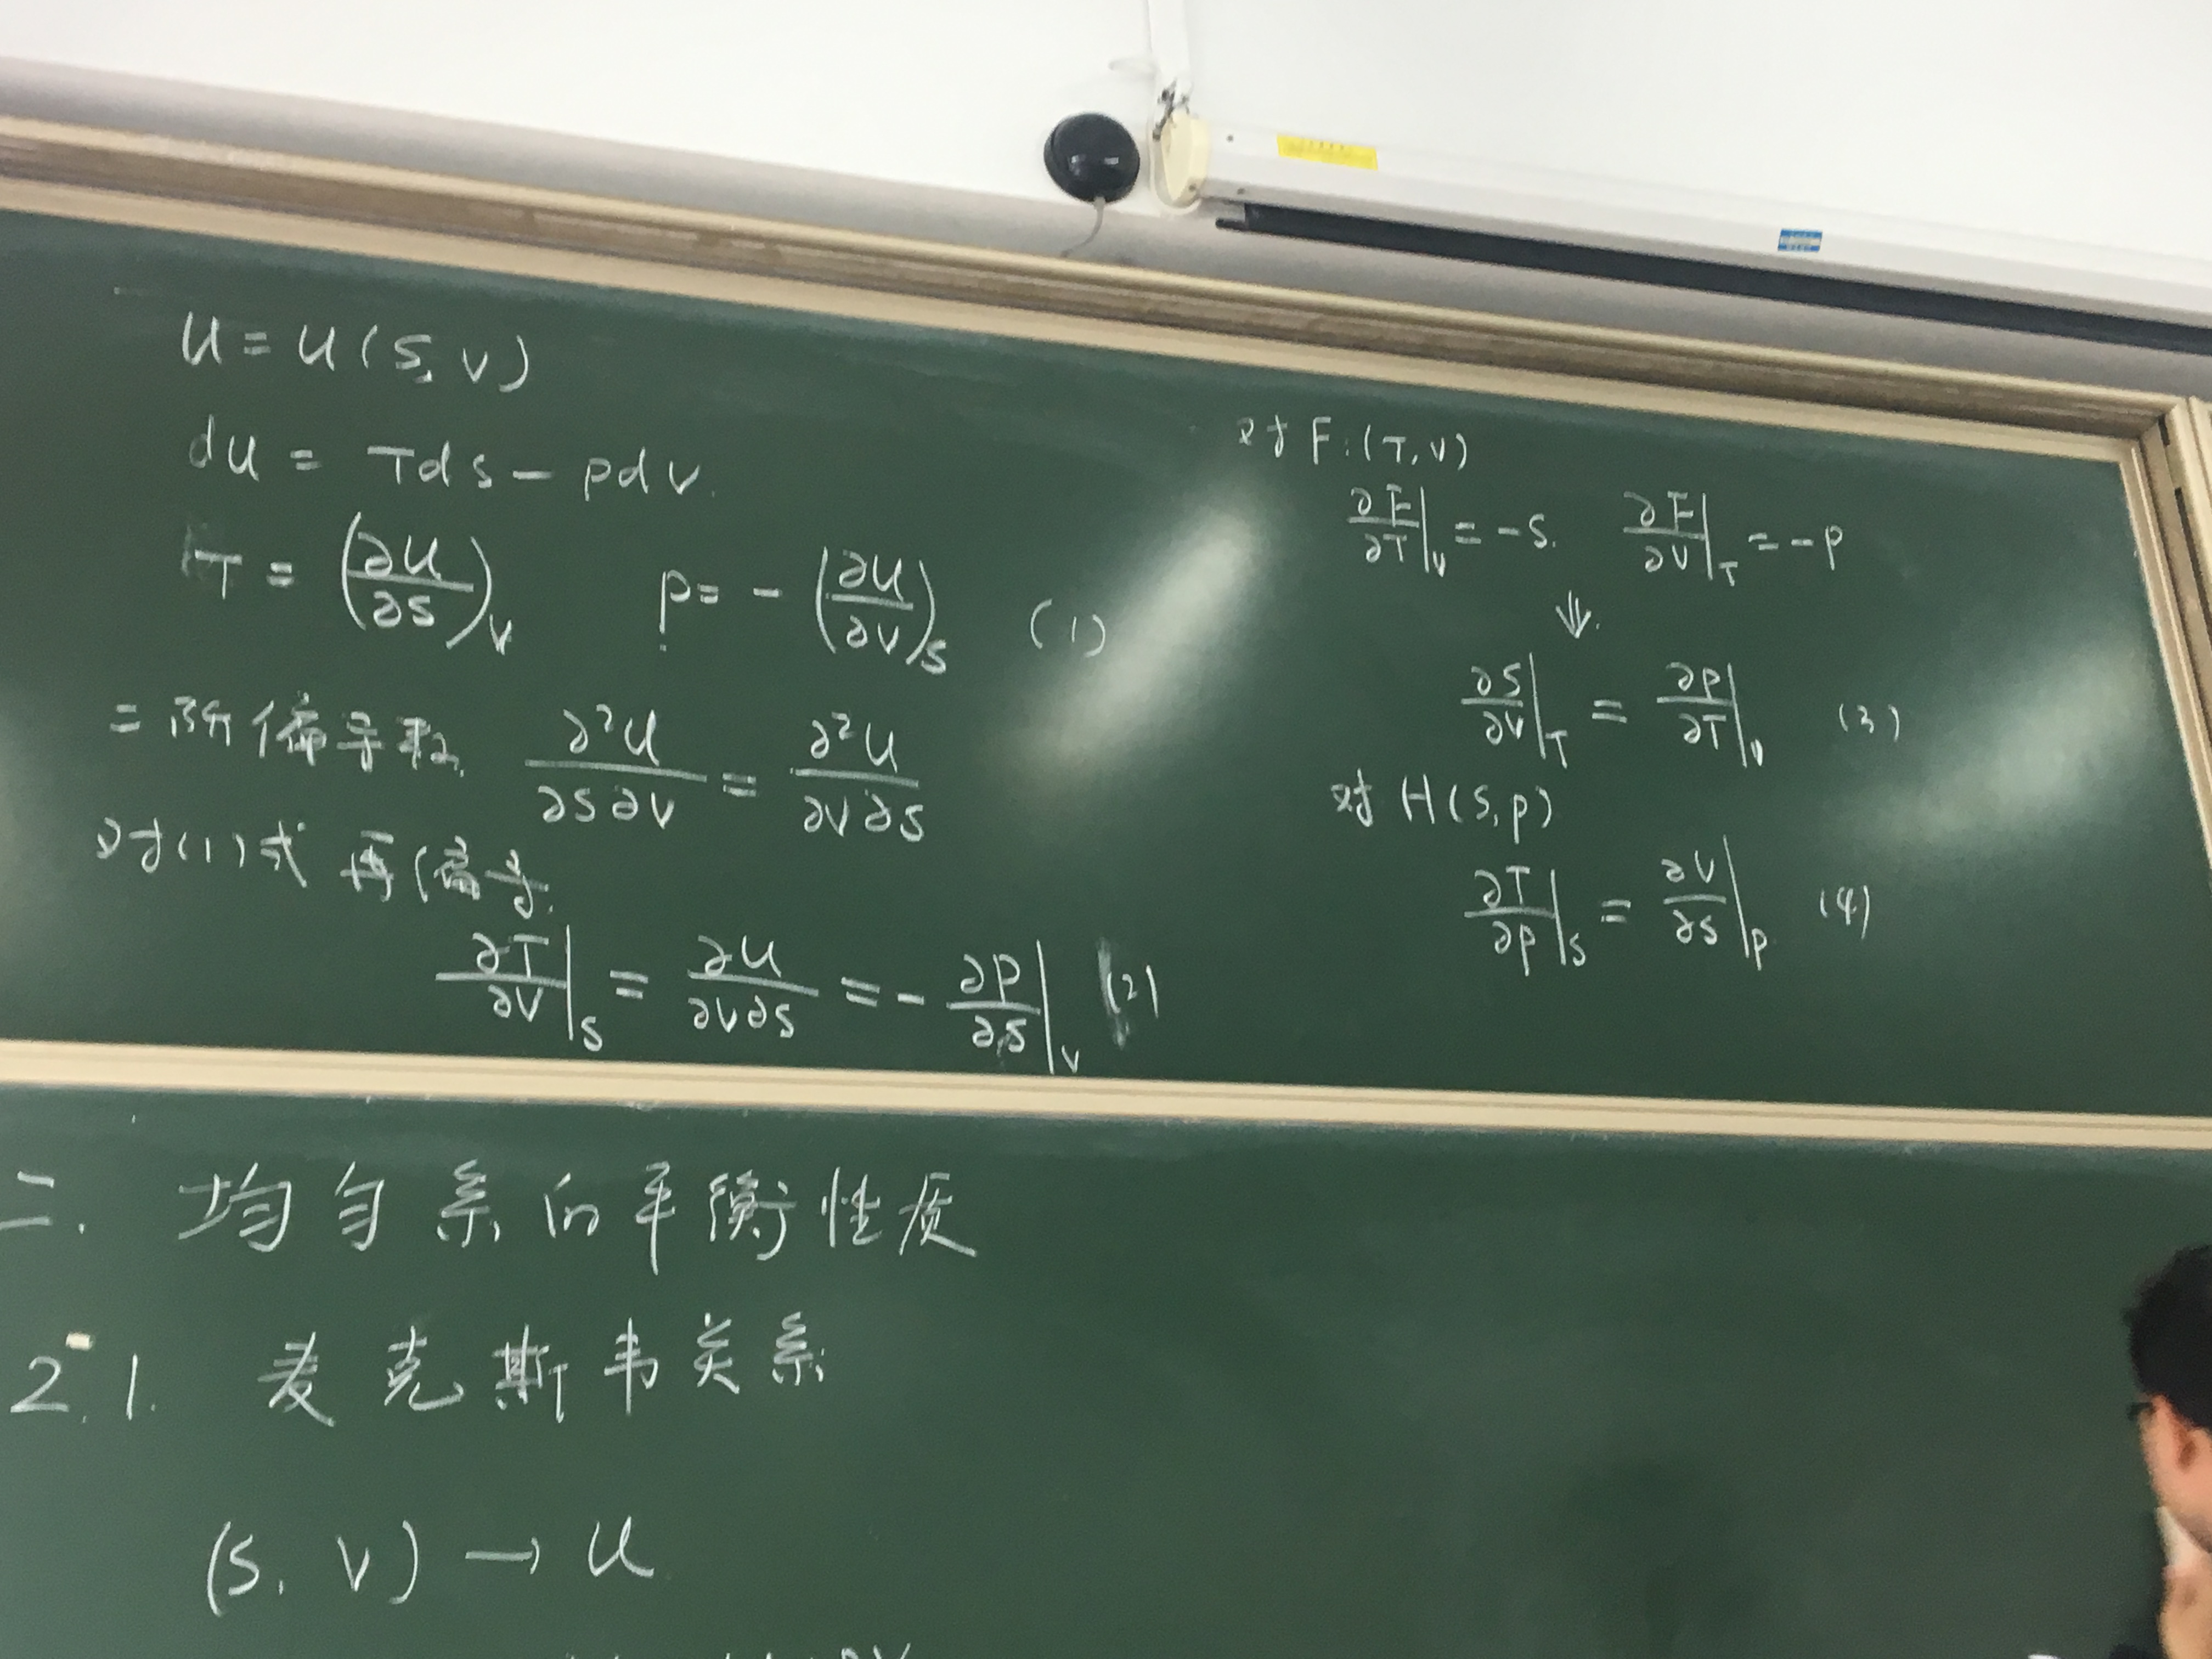 U = U(S, V)
dU = TdS - pdV.
T = (∂U/∂S)_V    p = -(∂U/∂V)_S    (1)
二阶偏导数 ∂²U/∂S∂V = ∂²U/∂V∂S
对(1)式 再偏导.
∂T/∂V|_S = ∂U/∂V∂S = -∂p/∂S|_V  (2)
对 F:(T, V)
∂F/∂T|_V = -S.    ∂F/∂V|_T = -p
⇓.
∂S/∂V|_T = ∂p/∂T|_V  (3)
对 H(S, p)
∂T/∂p|_S = ∂V/∂S|_p  (4)
二. 均匀系的平衡性质
2.1. 麦克斯韦关系
(S, V) → U